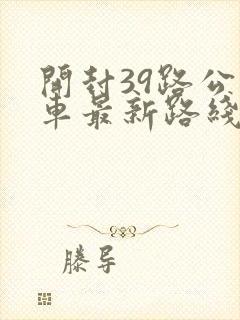 開封39路公
車最新路綫
滕导